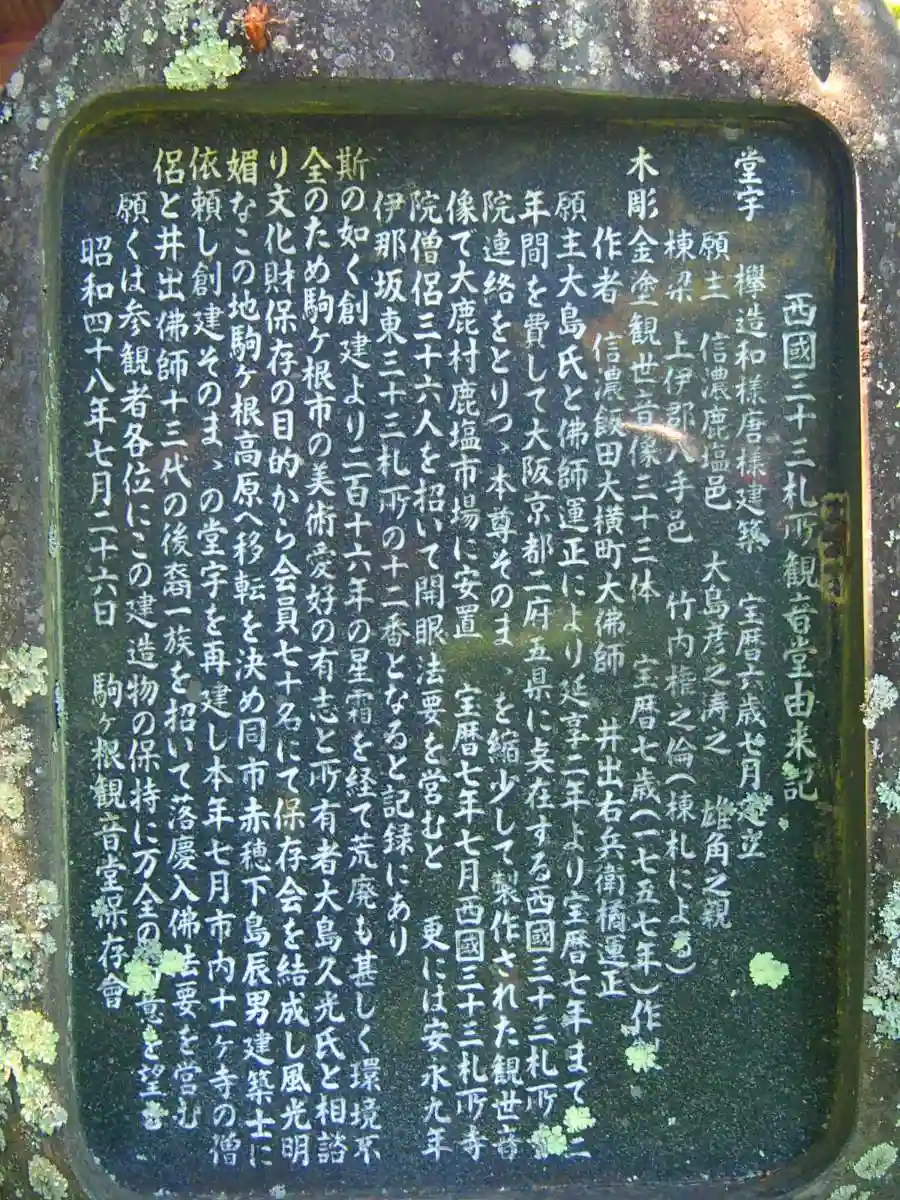 西國三十三札所観音堂由来記
堂宇　欅造和様唐様建築　宝暦六歳七月建立
願主　信濃鹿塩邑　大島彦之濤之　雄角之親
棟梁　上伊郡八手邑　竹内権之倫(棟札による)
木彫金塗観世音像三十三体　宝暦七歳(一七五七年)作
作者　信濃飯田大横町大佛師　井出右兵衛橘運正
願主大島氏と佛師運正により延享二年より宝暦七年まで二
年間を費して大阪京都二府五県に点在する西國三十三札所
院連絡をとりつゝ本尊そのまゝを縮少して製作された観世音
像で大鹿村鹿塩市場に安置　宝暦七年七月西國三十三札所寺
院僧侶三十六人を招いて開眼法要を営むと　更には安永九年
伊那坂東三十三札所の十二番となると記録にあり
斯の如く創建より二百十六年の星霜を経て荒廃も甚しく環境不
全のため駒ヶ根市の美術愛好の有志と所有者大島久光氏と相談
り文化財保存の目的から会員七十名にて保存会を結成し風光明
媚なこの地駒ヶ根高原へ移転を決め同市赤穂下島辰男建築士に
依頼し創建そのまゝの堂宇を再建し本年七月市内十一ヶ寺の僧
侶と井出佛師十三代の後裔一族を招いて落慶入佛法要を営む
願くは参観者各位にこの建造物の保持に万全の意を望む
昭和四十八年七月二十六日　駒ヶ根観音堂保存會